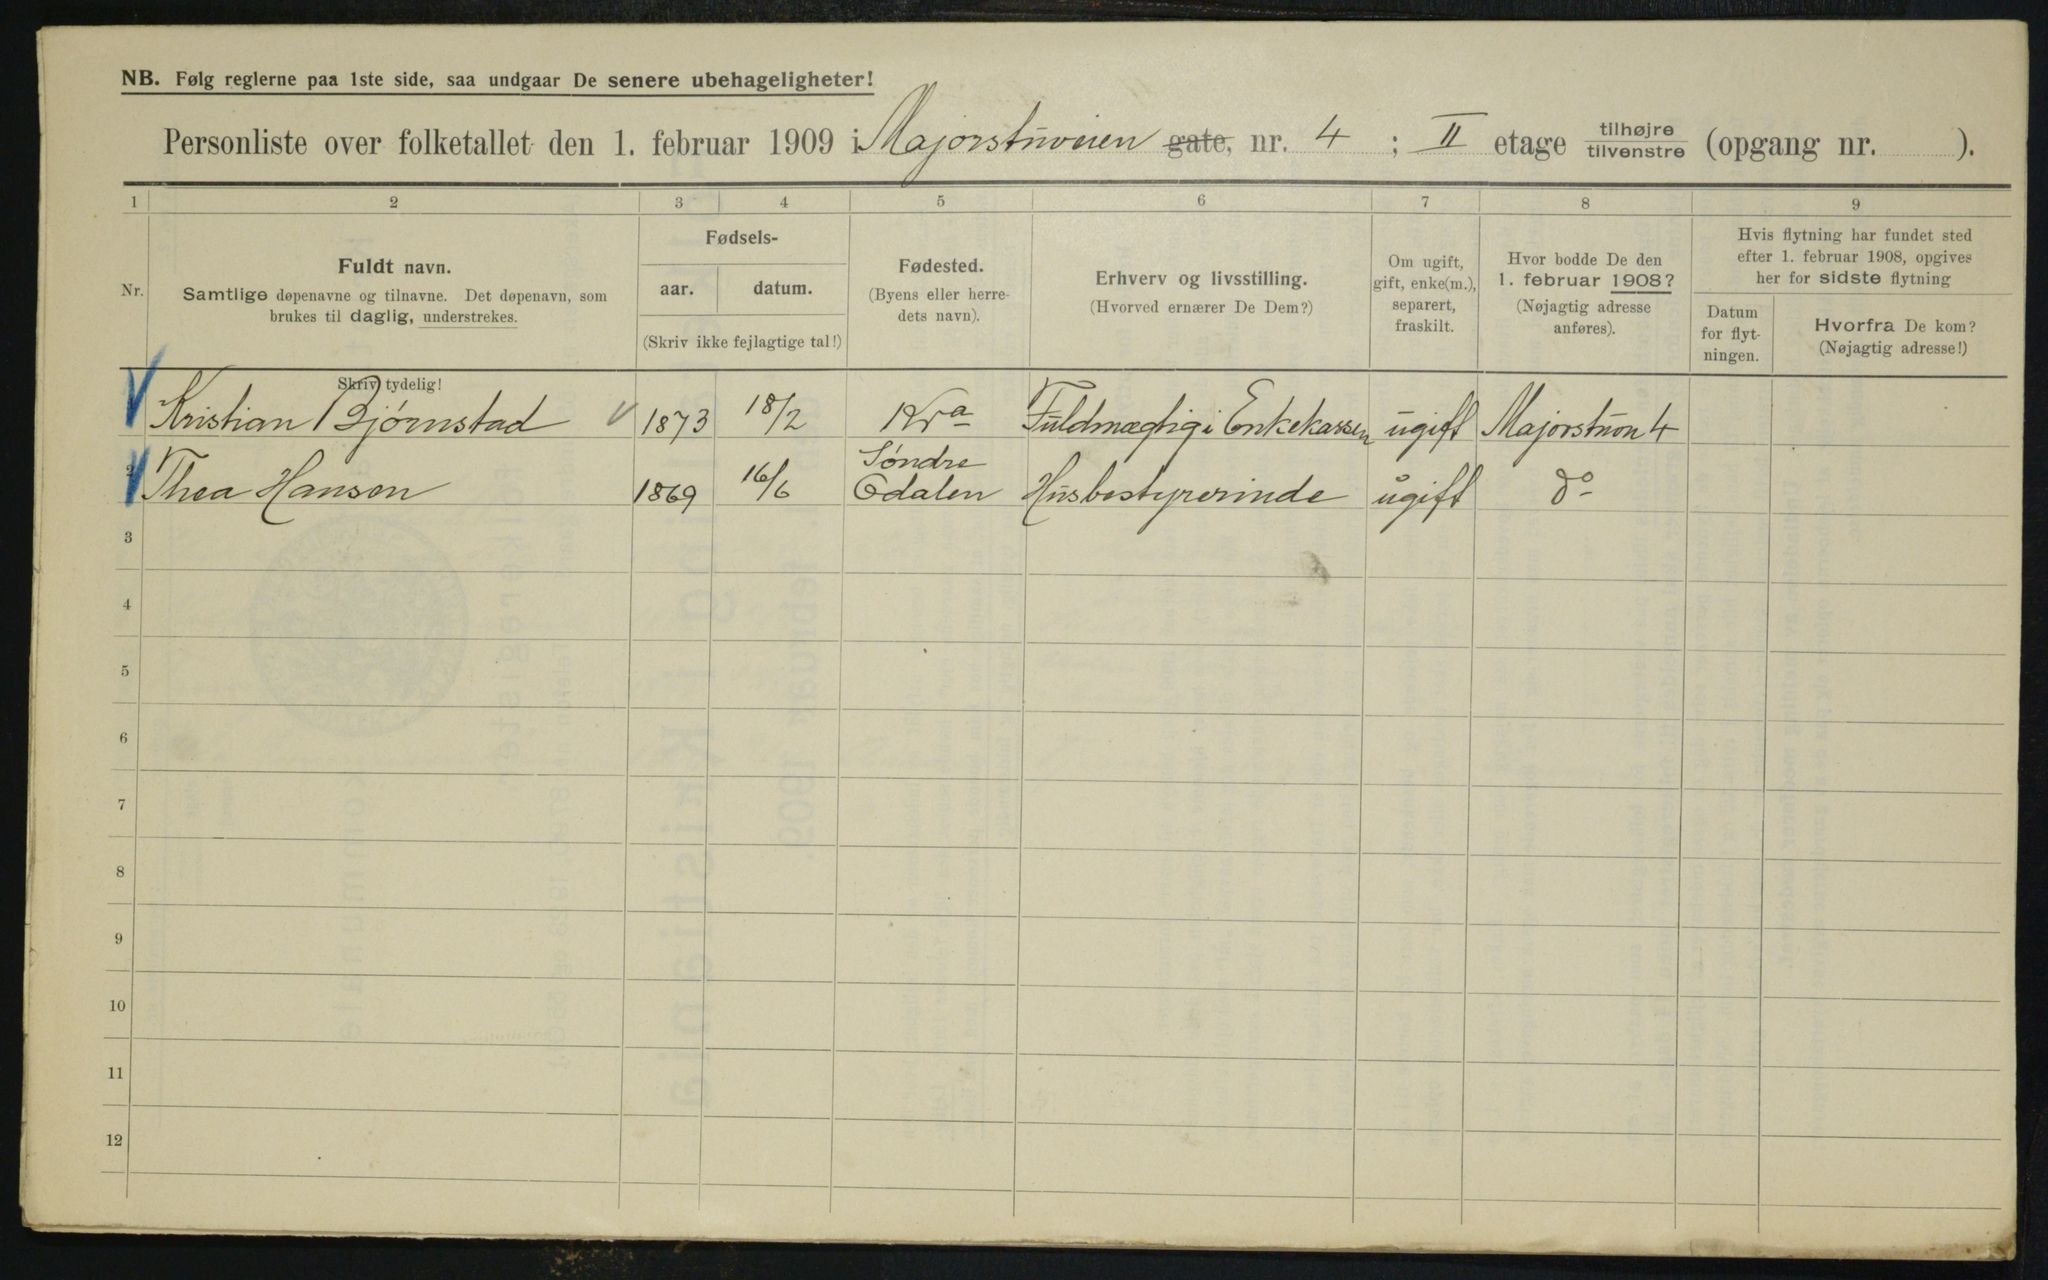 NB. Følg reglerne paa 1ste side, saa undgaar De senere ubehageligheter!
Personliste over folketallet den 1. februar 1909 i Majorstuveien gate, nr. 4 ; II etage tilhøjre tilvenstre (opgang nr. ).
1 2 3 4 5 6 7 8 9
Nr.
Fuldt navn.
Samtlige døpenavne og tilnavne. Det døpenavn, som
brukes til daglig, understrekes.
Skriv tydelig!
Fødsels-
aar. datum.
(Skriv ikke fejlagtige tal!)
Fødested.
(Byens eller herre-
dets navn).
Erhverv og livsstilling.
(Hvorved ernærer De Dem?)
Om ugift,
gift, enke(m.),
separert,
fraskilt.
Hvor bodde De den
1. februar 1908?
(Nøjagtig adresse
anføres).
Hvis flytning har fundet sted
efter 1. februar 1908, opgives
her for sidste flytning
Datum
for flyt-
ningen.
Hvorfra De kom?
(Nøjagtig adresse!)
Kristian Bjørnstad 1873 18/2 Kra Fuldmægtig i Enkekassen ugift Majorstuen 4
2 Thea Hansen 1869 16/6 Søndre
Odalen Husbestyrerinde ugift do
3
4
5
6
7
8
9
10
11
12